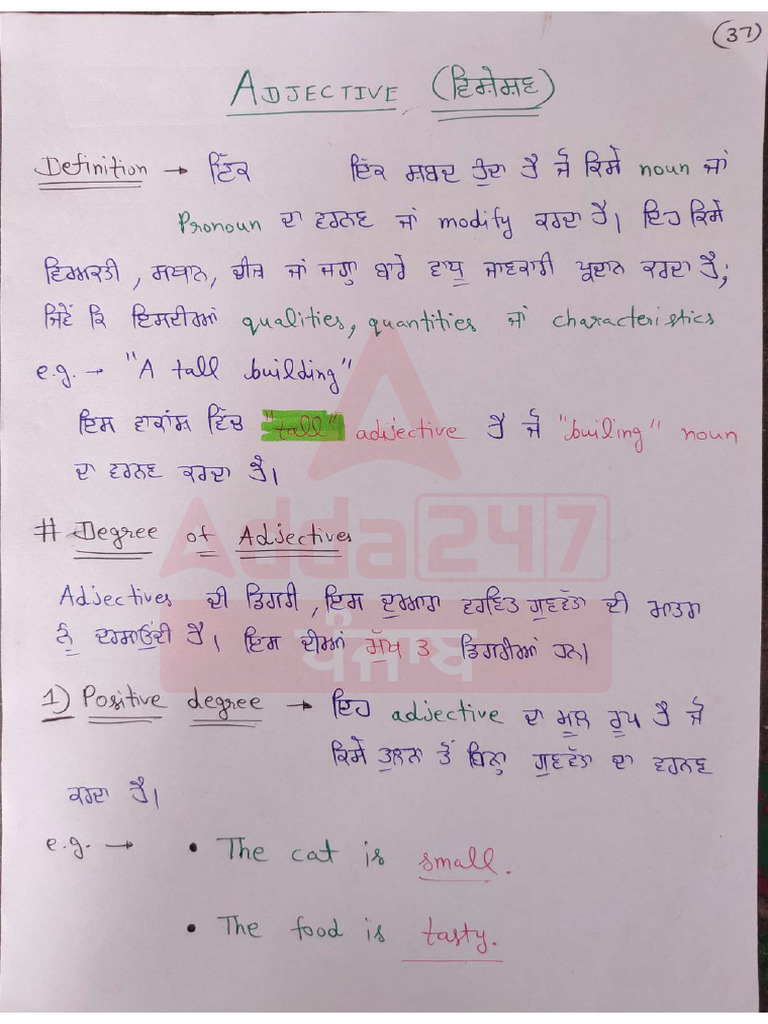 (37)
ADJECTIVE (ਵਿਸ਼ੇਸ਼ਣ)
Definition → ਇੱਕ ਇੱਕ ਸ਼ਬਦ ਹੁੰਦਾ ਹੈ ਜੋ ਕਿਸੇ noun ਜਾਂ
Pronoun ਦਾ ਵਰਨਣ ਜਾਂ modify ਕਰਦਾ ਹੈ। ਇਹ ਕਿਸੇ
ਵਿਅਕਤੀ, ਸਥਾਨ, ਚੀਜ਼ ਜਾਂ ਜਗ੍ਹਾ ਬਾਰੇ ਵਾਧੂ ਜਾਣਕਾਰੀ ਪ੍ਰਦਾਨ ਕਰਦਾ ਹੈ;
ਜਿਵੇਂ ਕਿ ਇਸਦੀਆਂ qualities, quantities ਜਾਂ characteristics
e.g. → "A tall building"
ਇਸ ਵਾਕਾਂਸ਼ ਵਿੱਚ "tall" adjective ਹੈ ਜੋ "builing" noun
ਦਾ ਵਰਨਣ ਕਰਦਾ ਹੈ।
# Degree of Adjectives
Adda247
Adjectives ਦੀ ਡਿਗਰੀ, ਇਸ ਦੁਆਰਾ ਵਰਣਿਤ ਗੁਣਵੱਤਾ ਦੀ ਮਾਤਰਾ
ਨੂੰ ਦਰਸਾਉਂਦੀ ਹੈ। ਇਸ ਦੀਆਂ ਮੁੱਖ 3 ਡਿਗਰੀਆਂ ਹਨ।
ਪੰਜਾਬ
1) Positive degree → ਇਹ adjective ਦਾ ਮੂਲ ਰੂਪ ਹੈ ਜੋ
ਕਿਸੇ ਤੁਲਨਾ ਤੋਂ ਬਿਨ੍ਹਾ ਗੁਣਵੱਤਾ ਦਾ ਵਰਨਣ
ਕਰਦਾ ਹੈ।
e.g. → • The cat is small.
• The food is tasty.